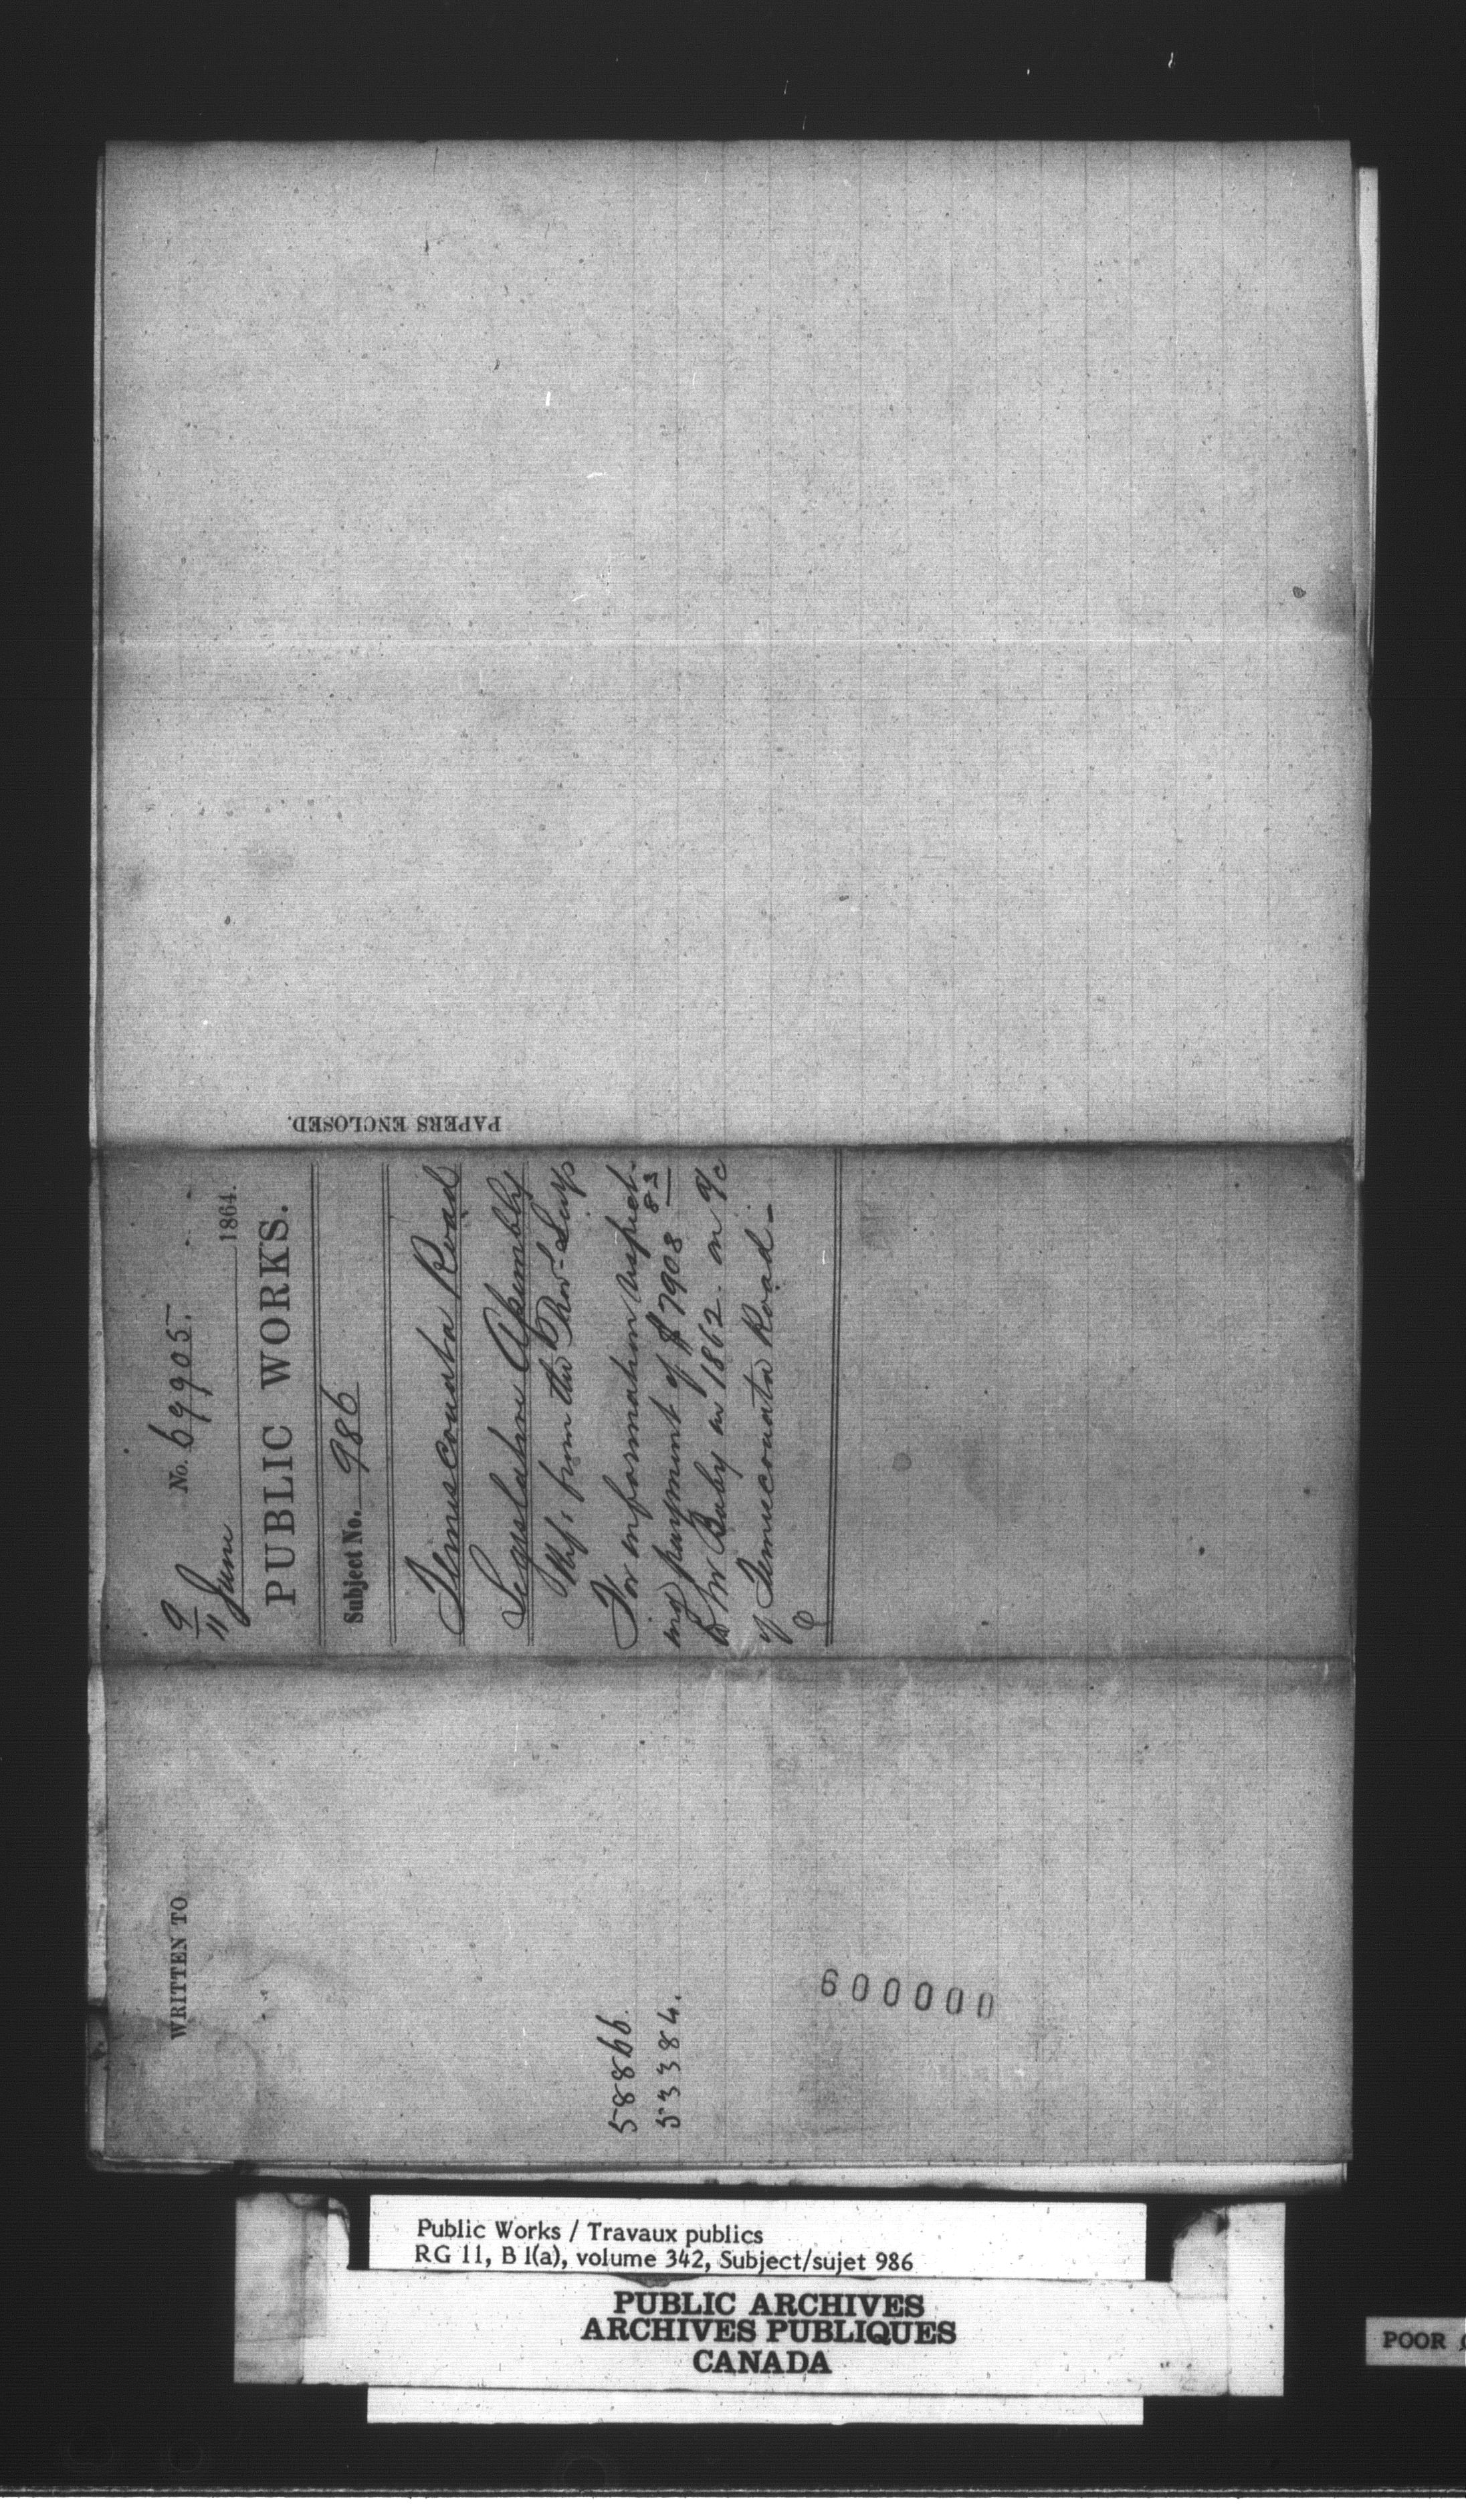 PAPERS ENCLOSED.
9
11 June 1864.
No. 69905.
PUBLIC WORKS.
Subject No. 986
Temiscouata Road
Legislative Assembly
Ref: from the Prov- Secy
For information respect-
ing payment of $7908 83
to Mr Baby in 1862 on a/c
of Temiscouata Road -
WRITTEN TO
58866.
53384.
600000
Public Works / Travaux publics
RG 11, B 1(a), volume 342, Subject/sujet 986
PUBLIC ARCHIVES
ARCHIVES PUBLIQUES
CANADA
POOR